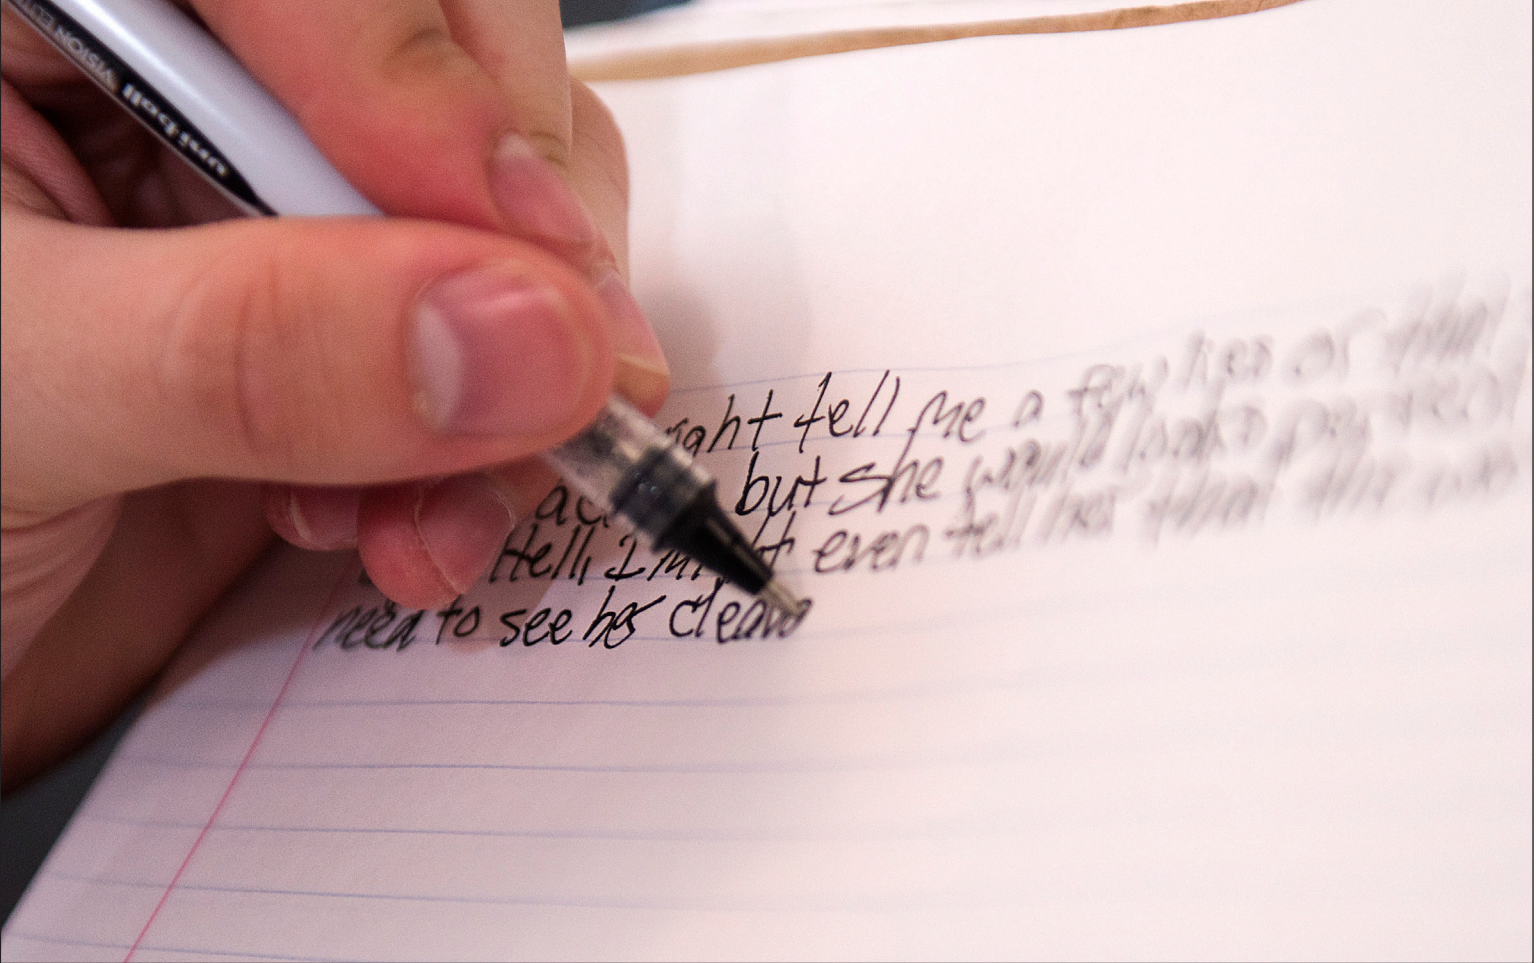 uni-ball VISION ELITE
tell me a few lies or that
but she would look
Hell, I might even tell her that this
need to see her cleava